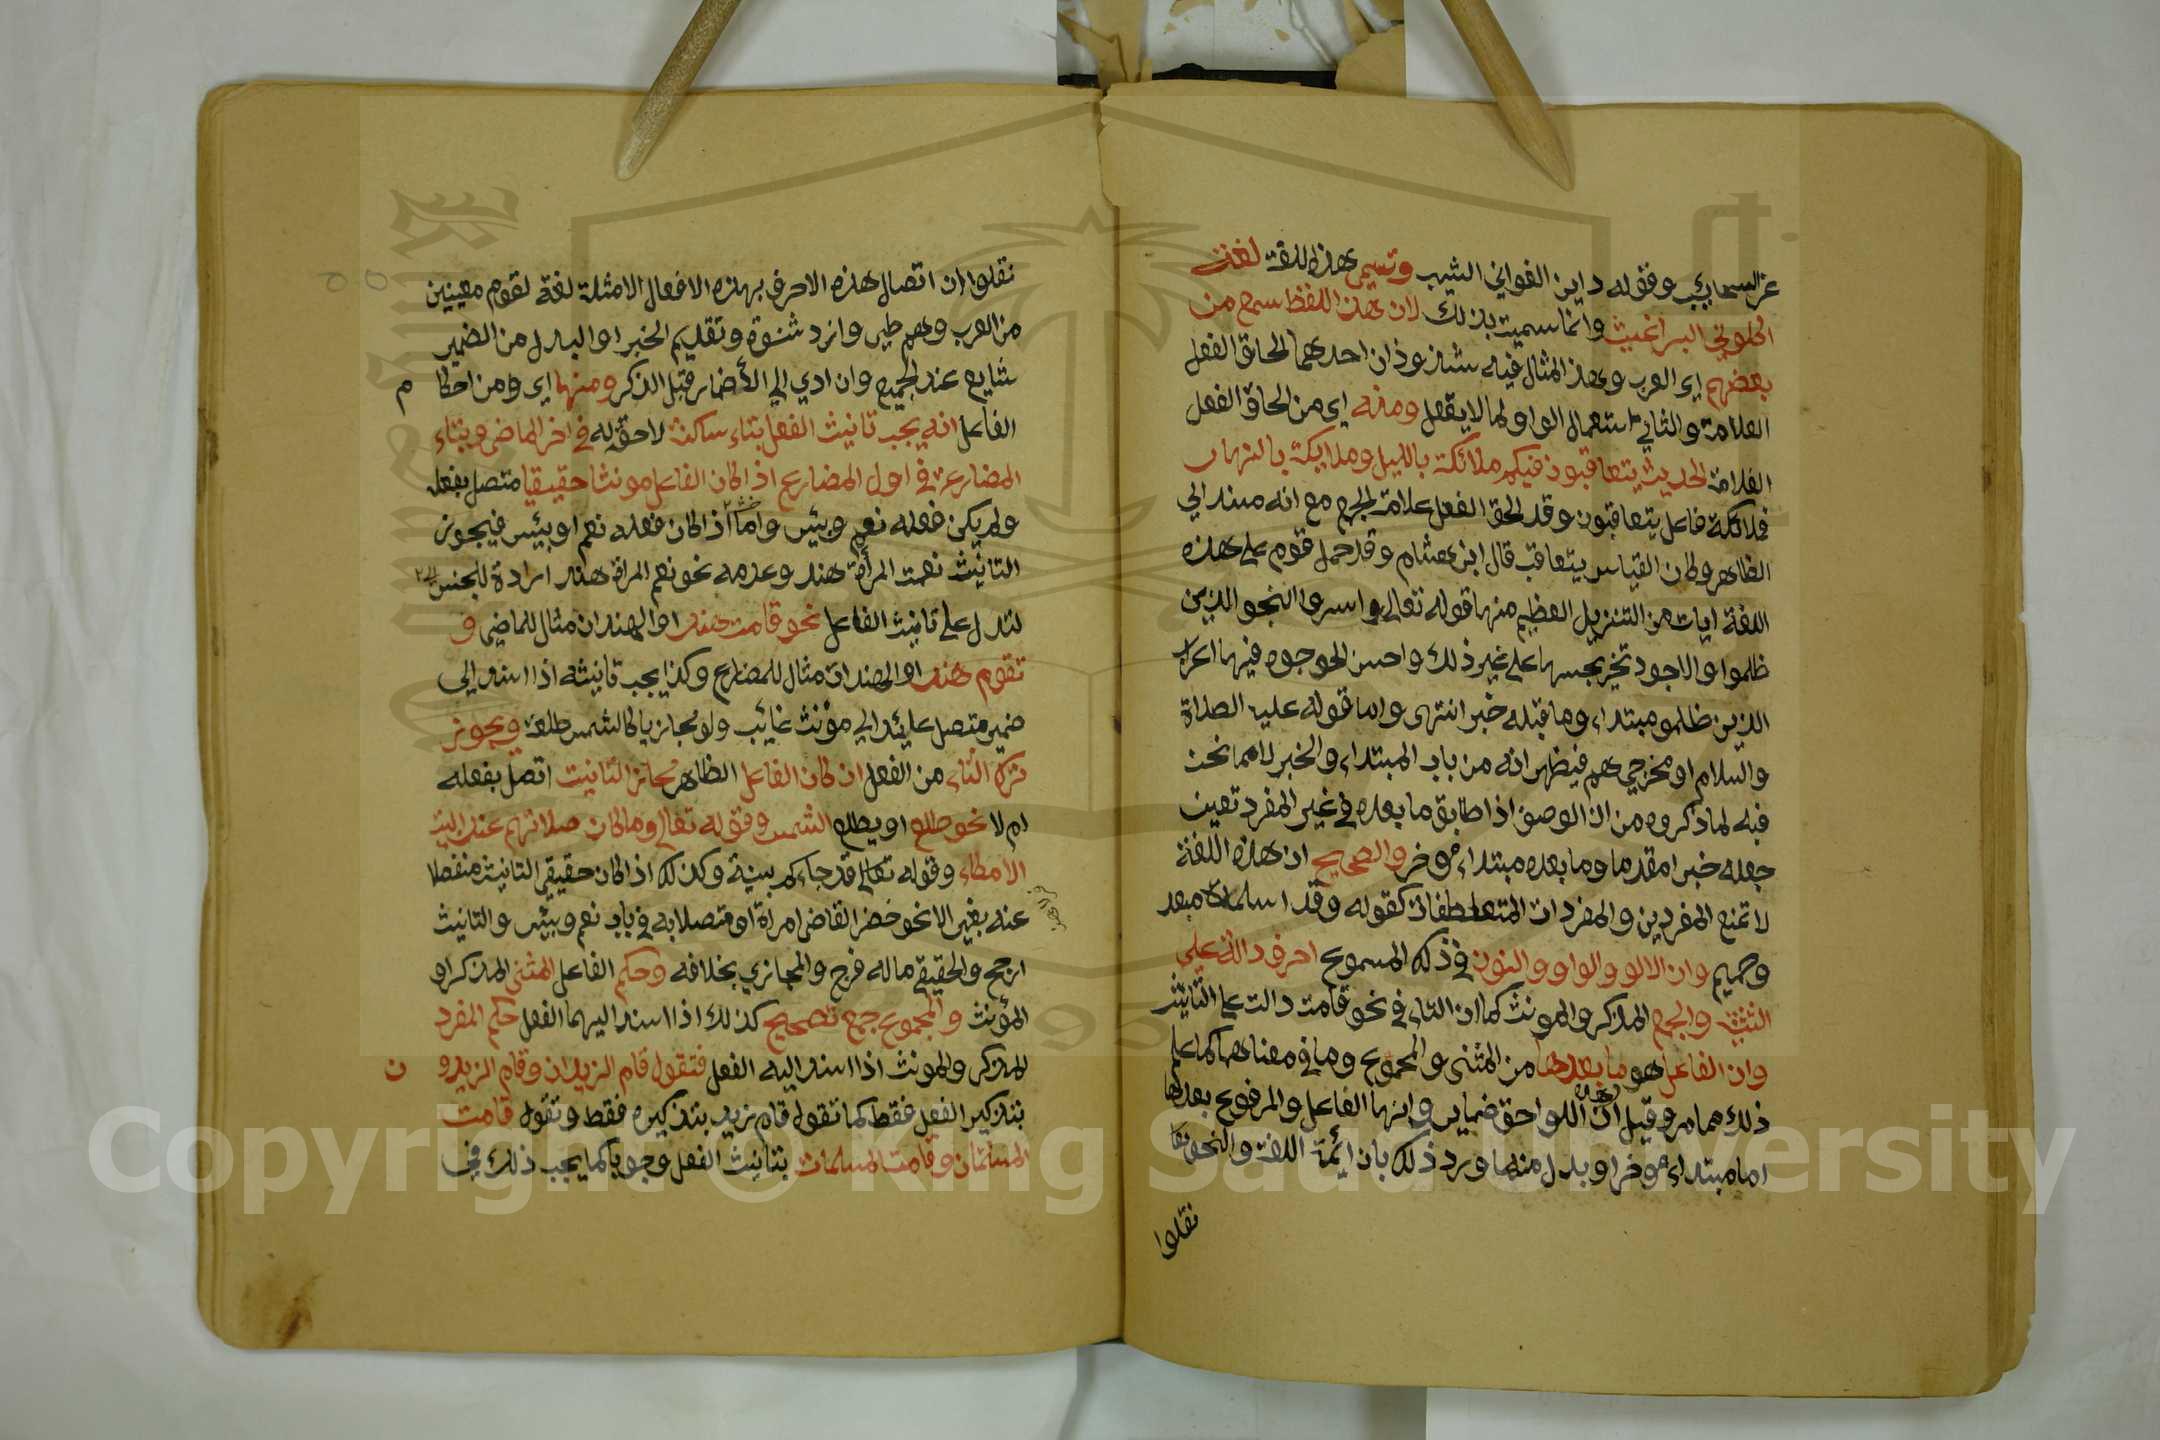 غر السحايب وقوله داين الغواني الشيب وتسمى هذه اللغة لغة
اكلوني البراغيث وانما سميت بذلك لان هذا اللفظ سمع من
بعضهم اي العرب وهذا المثال فيه شذوذان احدهما الحاق الفعل
العلامة والثاني استعمال الواو لما لا يعقل ومنه اي من الحاق الفعل
العلامة الحديث يتعاقبون فيكم ملائكة بالليل وملايكة بالنهار
فملائكة فاعل يتعاقبون وقد الحق الفعل علامة الجمع مع انه مسند الي
الظاهر وكان القياس يتعاقب قال ابن هشام وقد حمل قوم على هذه
اللغة ايات من التنزيل العظيم منها قوله تعالى واسروا النجوا الذين
ظلموا والاجود تخريجها على غير ذلك واحسن الوجوه فيها اعراب
الذين ظلمو مبتداء وما قبله خبر انتهى واما قوله عليه الصلاة
والسلام او مخرجي هم فيظهر انه من باب المبتداء والخبر لا مما نحن
فيه لما ذكروه من ان الوصف اذا طابق ما بعده في غير المفرد تعين
جعله خبرا مقدما وما بعده مبتداء موخر والصحيح ان هذه اللغة
لا تمنع المفردين والمفردات المتعاطفات كقوله وقد اسلماه مبعد
وحميم وان الالو والواو والنون في ذلك المسموع احرف دالة علي
التثنية والجمع المذكر والمونث كما ان التاء في نحو قامت دالت على التانيث
وان الفاعل هو ما بعدها من المثنى والمجموع وما في معناهما كما علم
ذلك مما مر وقيل ان هذه اللواحق ضماير وانها الفاعل والمرفوع بعدها
اما مبتداء موخر او بدل منها ورد ذلك بان ائمة اللغة والنحو
نقلوا
نقلوا ان اتصال هذه الاحرف بهذه الافعال الامثلة لغة لقوم معينين
من العرب وهم طي وازد شنوة وتقديم الخبر او البدل من الضمير
شايع عند الجميع وان ادي الي الأضمار قبل الذكر ومنها اي ومن احكا م
الفاعل انه يجب تانيث الفعل بتاء ساكنة لاحقة له في اخر الماضي وبتاء
المضارعة في اول المضارع اذا كان الفاعل مونثا حقيقيا متصل بفعله
ولم يكن فعله نعم وبيس واما اذا كان فعله نعم او بيئس فيجوز
التانيث نعمت المرأة هند وعدمه نحو نعم المراة هند ارادة للجنس
لتدل على تانيث الفاعل نحو قامت هند او الهندان مثال للماضي و
تقوم هند او الهندان مثال للمضارع وكذا يجب تانيثه اذا اسند الي
ضمير متصل عايد الي مؤنث غايب ولو مجازيا كالشمس طلعت ويجوز
ترك التاء من الفعل ان كان الفاعل الظاهر مجازي التانيث اتصل بفعله
ام لا نحو طلع او يطلع الشمس وقوله تعالى وما كان صلاتهم عند البيت
الا مكاء وقوله تعالى قد جاءكم بينة وكذلك اذا كان حقيقي التانيث منفصلا
عنه بغير الا نحو حضر القاضي امراة او متصلا به في باب نعم وبيئس والتانيث
ارجح والحقيقي ما له فرج والمجازي بخلافه وحكم الفاعل المثنى المذكر او
المؤنث والمجموع جمع تصحيح كذلك اذا اسند اليهما الفعل حكم المفرد
المذكر والمونث اذا اسند اليه الفعل فتقول قام الزيدان وقام الزيدو ن
بتذكير الفعل فقط كما تقول قام زيد بتذكيره فقط وتقول قامت
المسلمتان وقامت المسلمات بتانيث الفعل وجوبا كما يجب ذلك في
Copyright © King Saud University